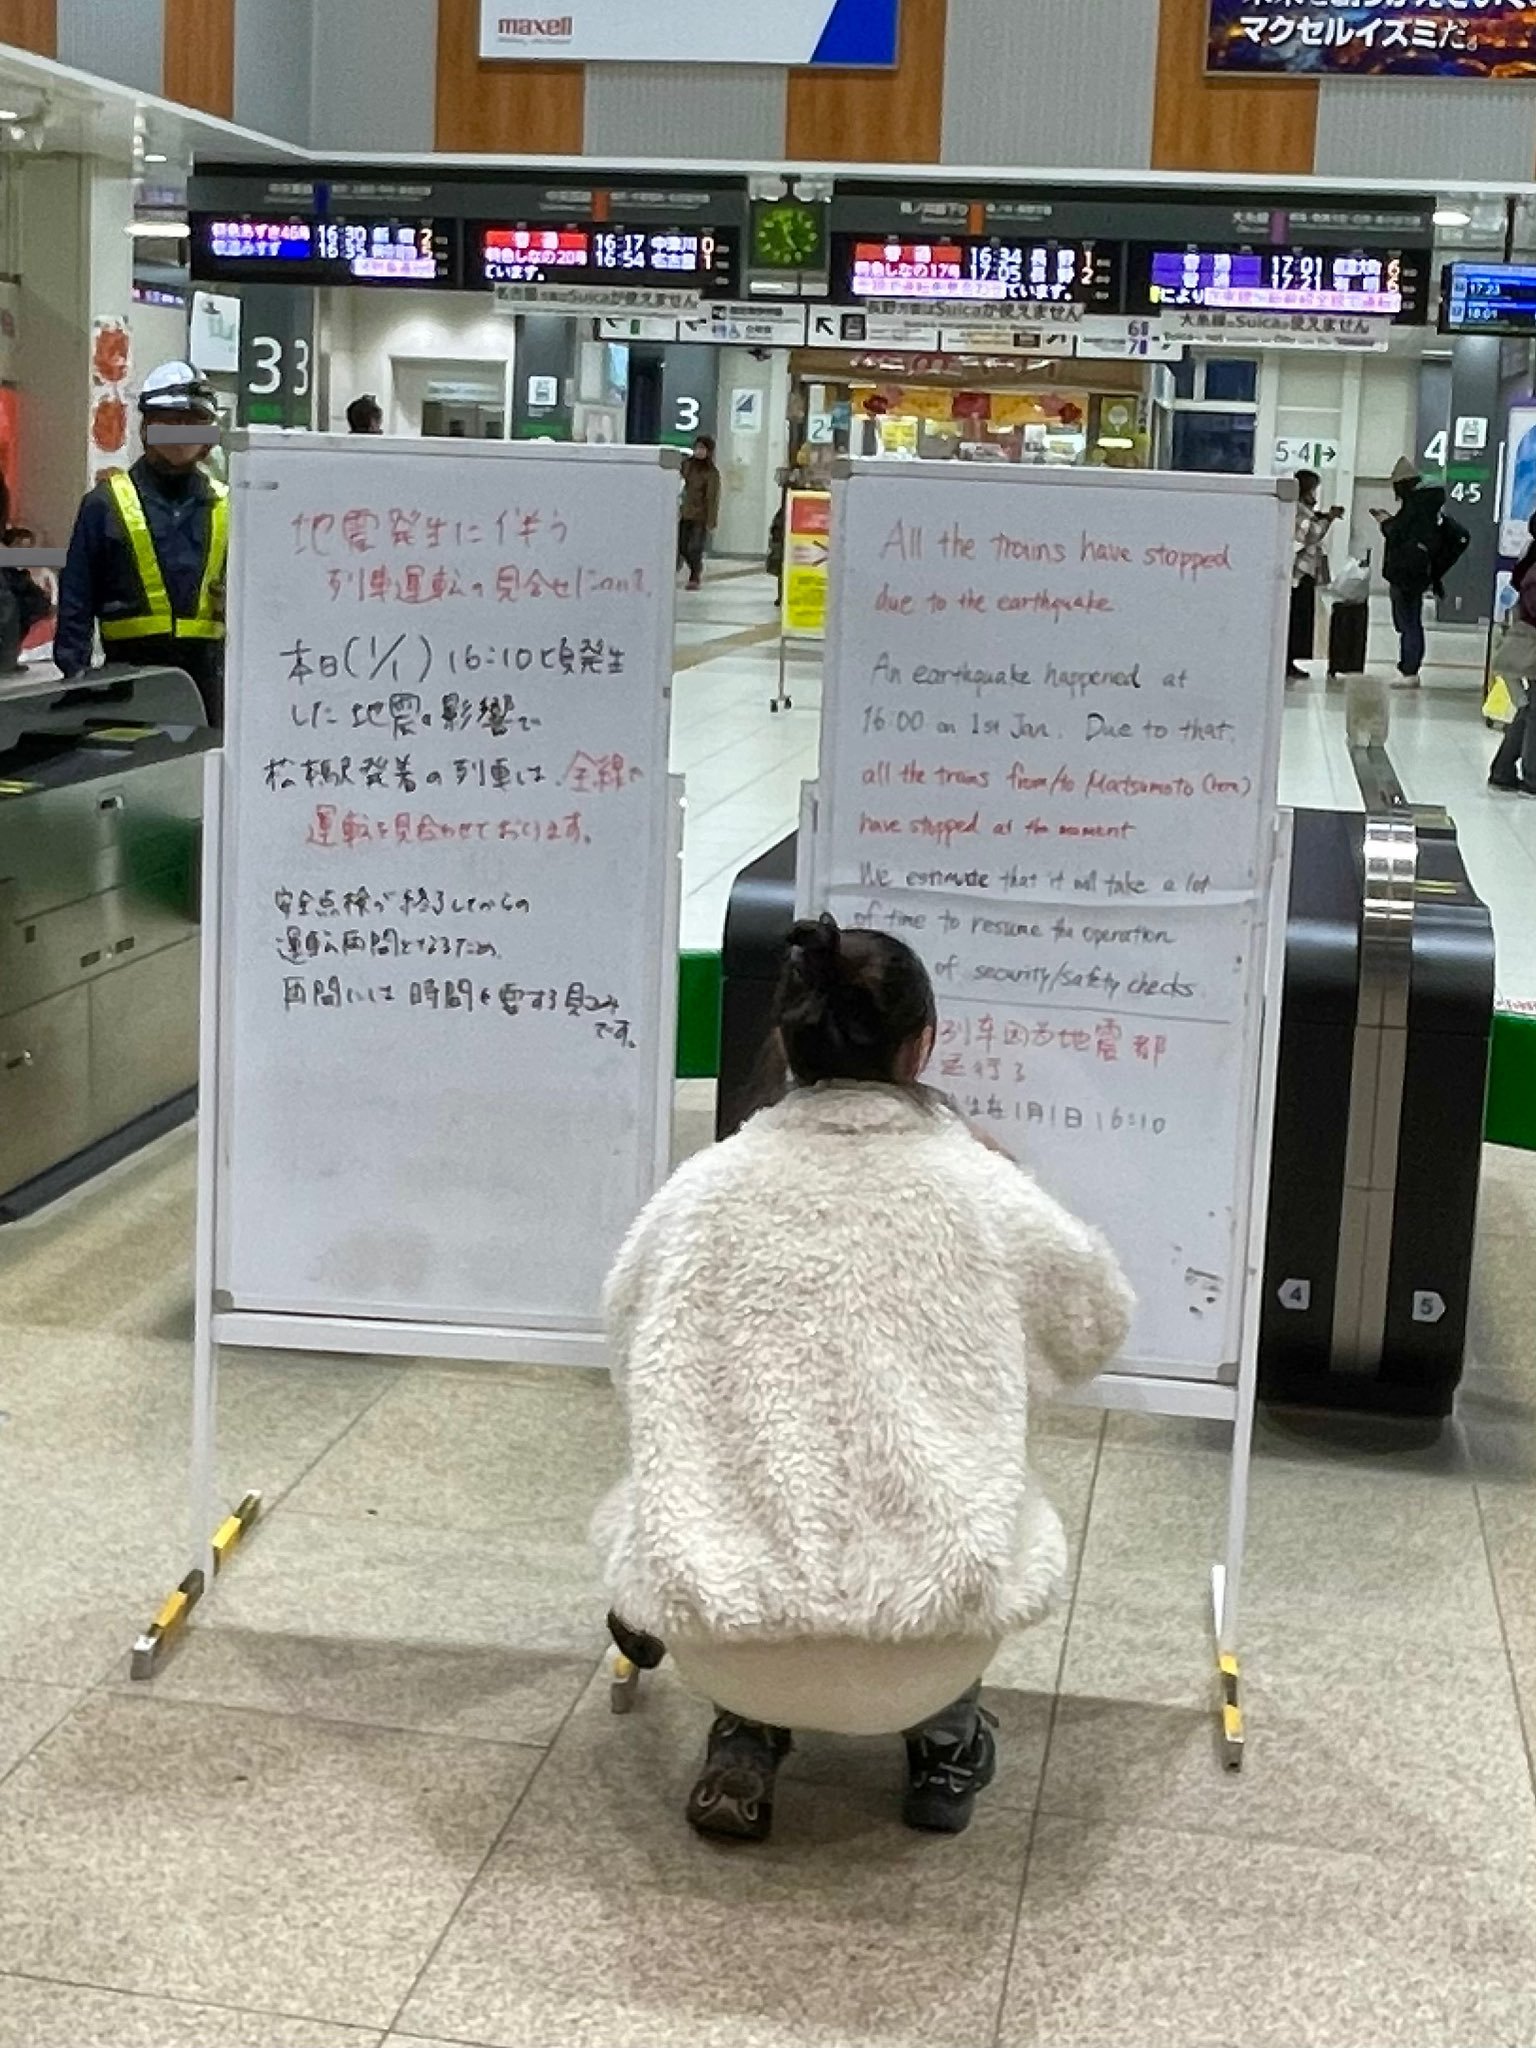 maxell
マクセルイズミだ。
特急あずさ45号 16:30 新宿 2
快速みすず 16:35 5
普通 16:17 中津川 0
特急しなの20号 16:54 名古屋 1
ています。
普通 16:34 長野 1
特急しなの17号 17:05 長野 2
ています。
普通 17:01 信濃大町 6
17:21 6
により
17:23
18:01
名古屋方面はSuicaが使えません
長野方面はSuicaが使えません
大糸線はSuicaが使えません
6
7
33
3
2
5-4
4
4-5
地震発生に伴う
列車運転の見合せについて
本日(1/1) 16:10頃発生
した地震の影響で
松本駅発着の列車は、全線で
運転を見合わせております。
安全点検が終了してからの
運転再開となるため、
再開には時間を要する見込み
です。
All the trains have stopped
due to the earthquake.
An earthquake happened at
16:00 on 1st Jan. Due to that,
all the trains from/to Matsumoto (here)
have stopped at the moment
We estimate that it will take a lot
of time to resume the operation
of security/safety checks.
列车因为地震都
运行了
生在1月1日16:10
4
5